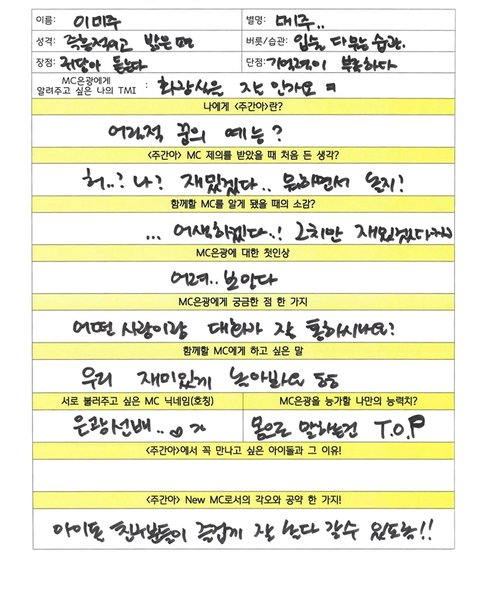 이름: 이미주 별명: 메주..
성격: 즉흥적이고 밝은편 버릇/습관: 입술 다무는 습관.
장점: 귀담아 듣는다 단점: 기억력이 부족하다
MC은광에게
알려주고 싶은 나의 TMI : 화장실은 잘 안가요 ㅁ
나에게 <주간아>란?
어릴적 꿈의 예능?
<주간아> MC 제의를 받았을 때 처음 든 생각?
허..? 나? 재밌겠다.. 윤하면서 놀지!
함께할 MC를 알게 됐을 때의 소감?
... 어색하겠다..! 그치만 재밌겠다
MC은광에 대한 첫인상
어려.. 보인다
MC은광에게 궁금한 점 한 가지
어떤 사람이랑 대화가 잘 통하시나요?
함께할 MC에게 하고 싶은 말
우리 재미있게 놀아봐요
서로 불러주고 싶은 MC 닉네임(호칭) MC은광을 능가할 나만의 능력치?
은광선배.. 몸으로 말하는건 T.O.P
<주간아>에서 꼭 만나고 싶은 아이돌과 그 이유!
<주간아> New MC로서의 각오와 공약 한 가지!
아이돌 친구분들이 즐겁게 잘 놀다 갈수 있도록!!